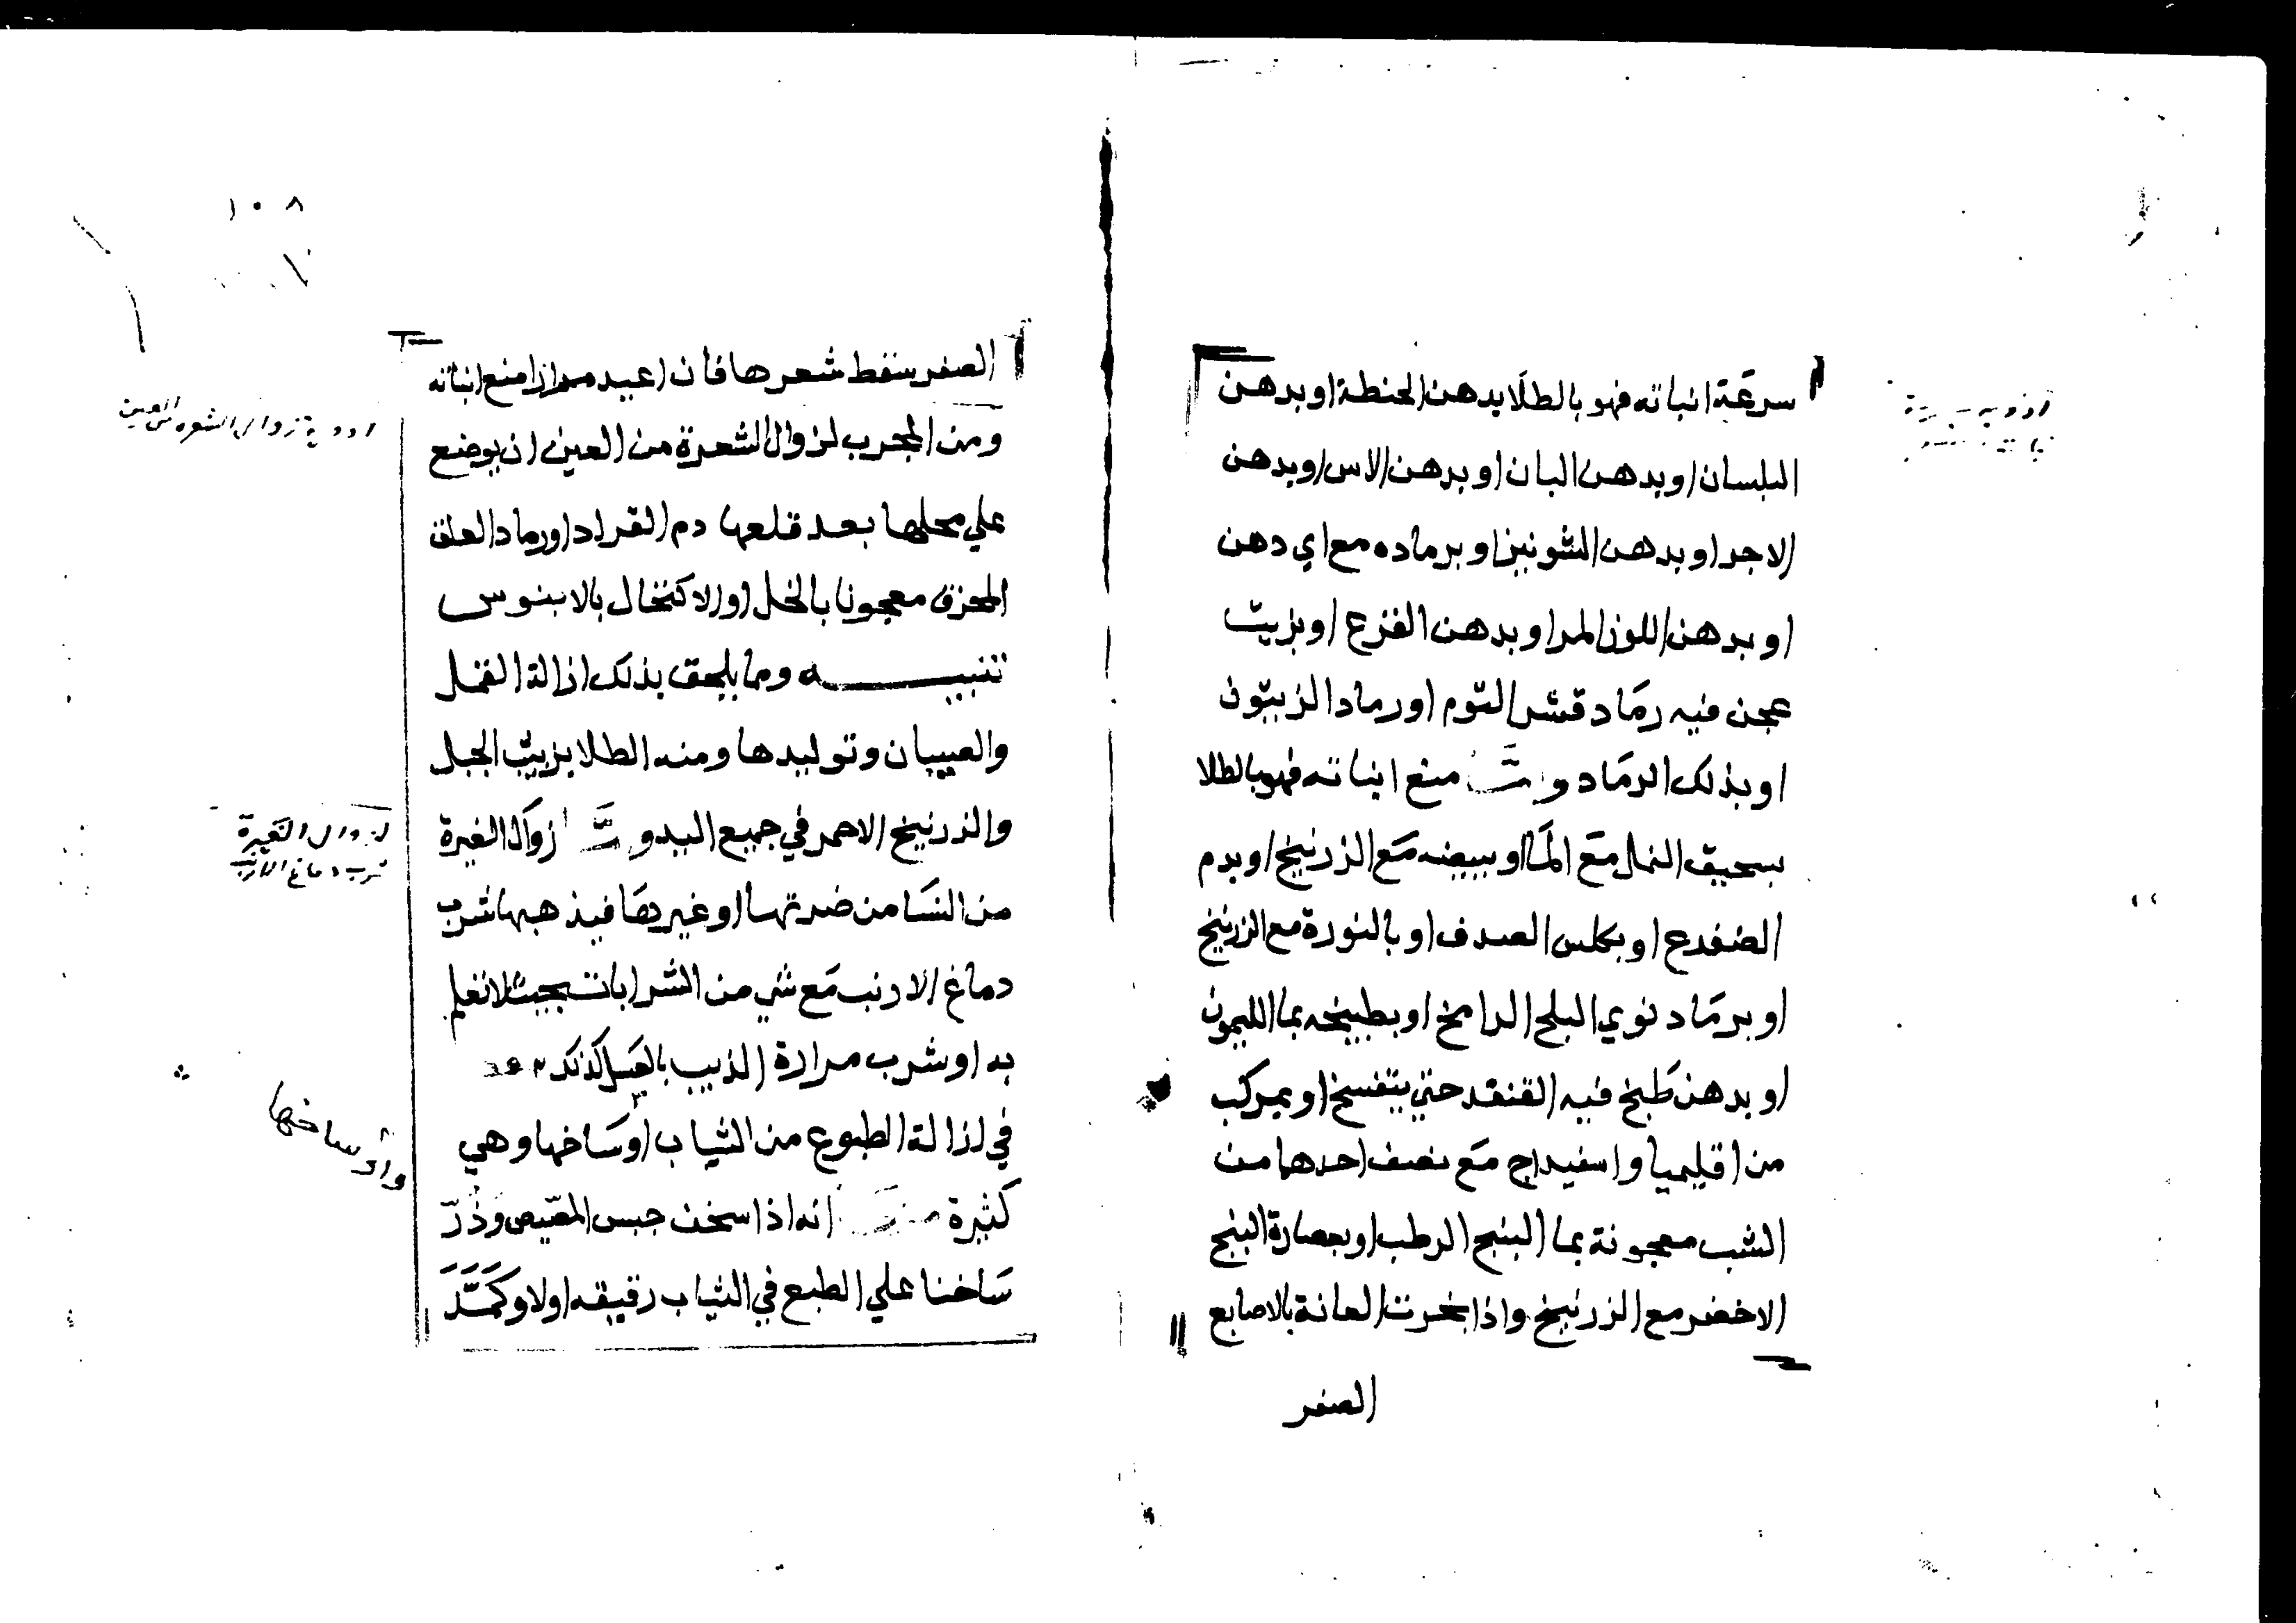 سرعة انباته فهو بالطلا بدهن الحنطة او بدهن
البلسان او بدهن البان او بدهن الاس او بدهن
الاجر او بدهن الشونيز او برماده مع اي دهن
او بدهن اللوز المر او بدهن القزع او بزيت
عجن فيه رماد قشر التوم او رماد الزيتون
او بذلك الرماد و منع انباته فهو بالطلا
بسحيق النمل مع الما او ببيضه مع الزرنيخ او بدم
الضفدع او بكلس الصدف او بالنورة مع الزرنيخ
او برماد نوي البلح الرامخ او بطبيخه بما الليمون
او بدهن طبخ فيه القنفد حتي يتفسخ او بمركب
من اقليميا واسفيداج مع نصف احدهما من
الشب معجونة بما البنج الرطب او بعصارة البنج
الاخضر مع الزرنيخ واذا بخرت العانة بالاصابع
الصفر
١٠٨
الصفر سقط شعرها فان اعيد مرارا منع انباته
ومن المجرب لزوال الشعرة من العين ان يوضع
علي محلها بعد قلعها دم القراد او رماد العلق
المحرق معجونا بالخل او الاكتحال بالابنوس
تنبيه ومما يلحق بذلك ازالة القمل
والصيبان وتوليدها ومنه الطلا بزيت الجبل
والزرنيخ الاحمر في جميع البدن و زوال الغيرة
من النسا من ضرتها او غيرها فيذهبها شرب
دماغ الارنب مع شي من الشرابات بحيث لا تعلم
به او شرب مرارة الذيب بالعسل كذلك
في ازالة الطبوع من الثياب اوساخها وهي
كثيرة انه اذا سخن جبس المصيص وذر
ساخنا علي الطبع في الثياب رقيقه اولا وكمد
ادوية زوال الشعره من العين
لزوال الغيرة
شرب دماغ الارنب
واوساخها